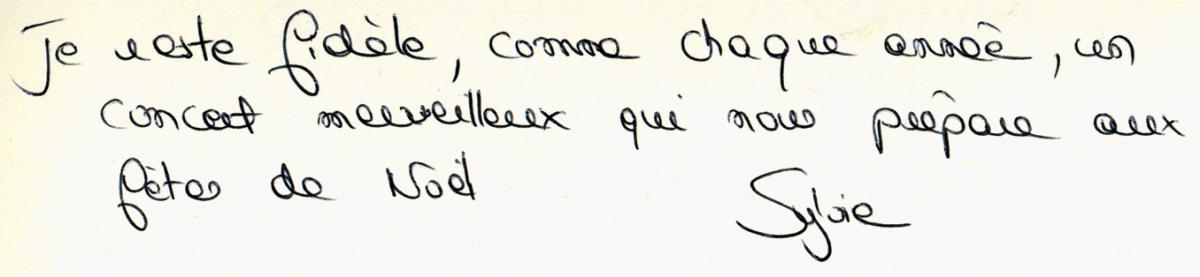 Je reste fidèle, comme chaque année, un
concert merveilleux qui nous prépare aux
fêtes de Noël
Sylvie